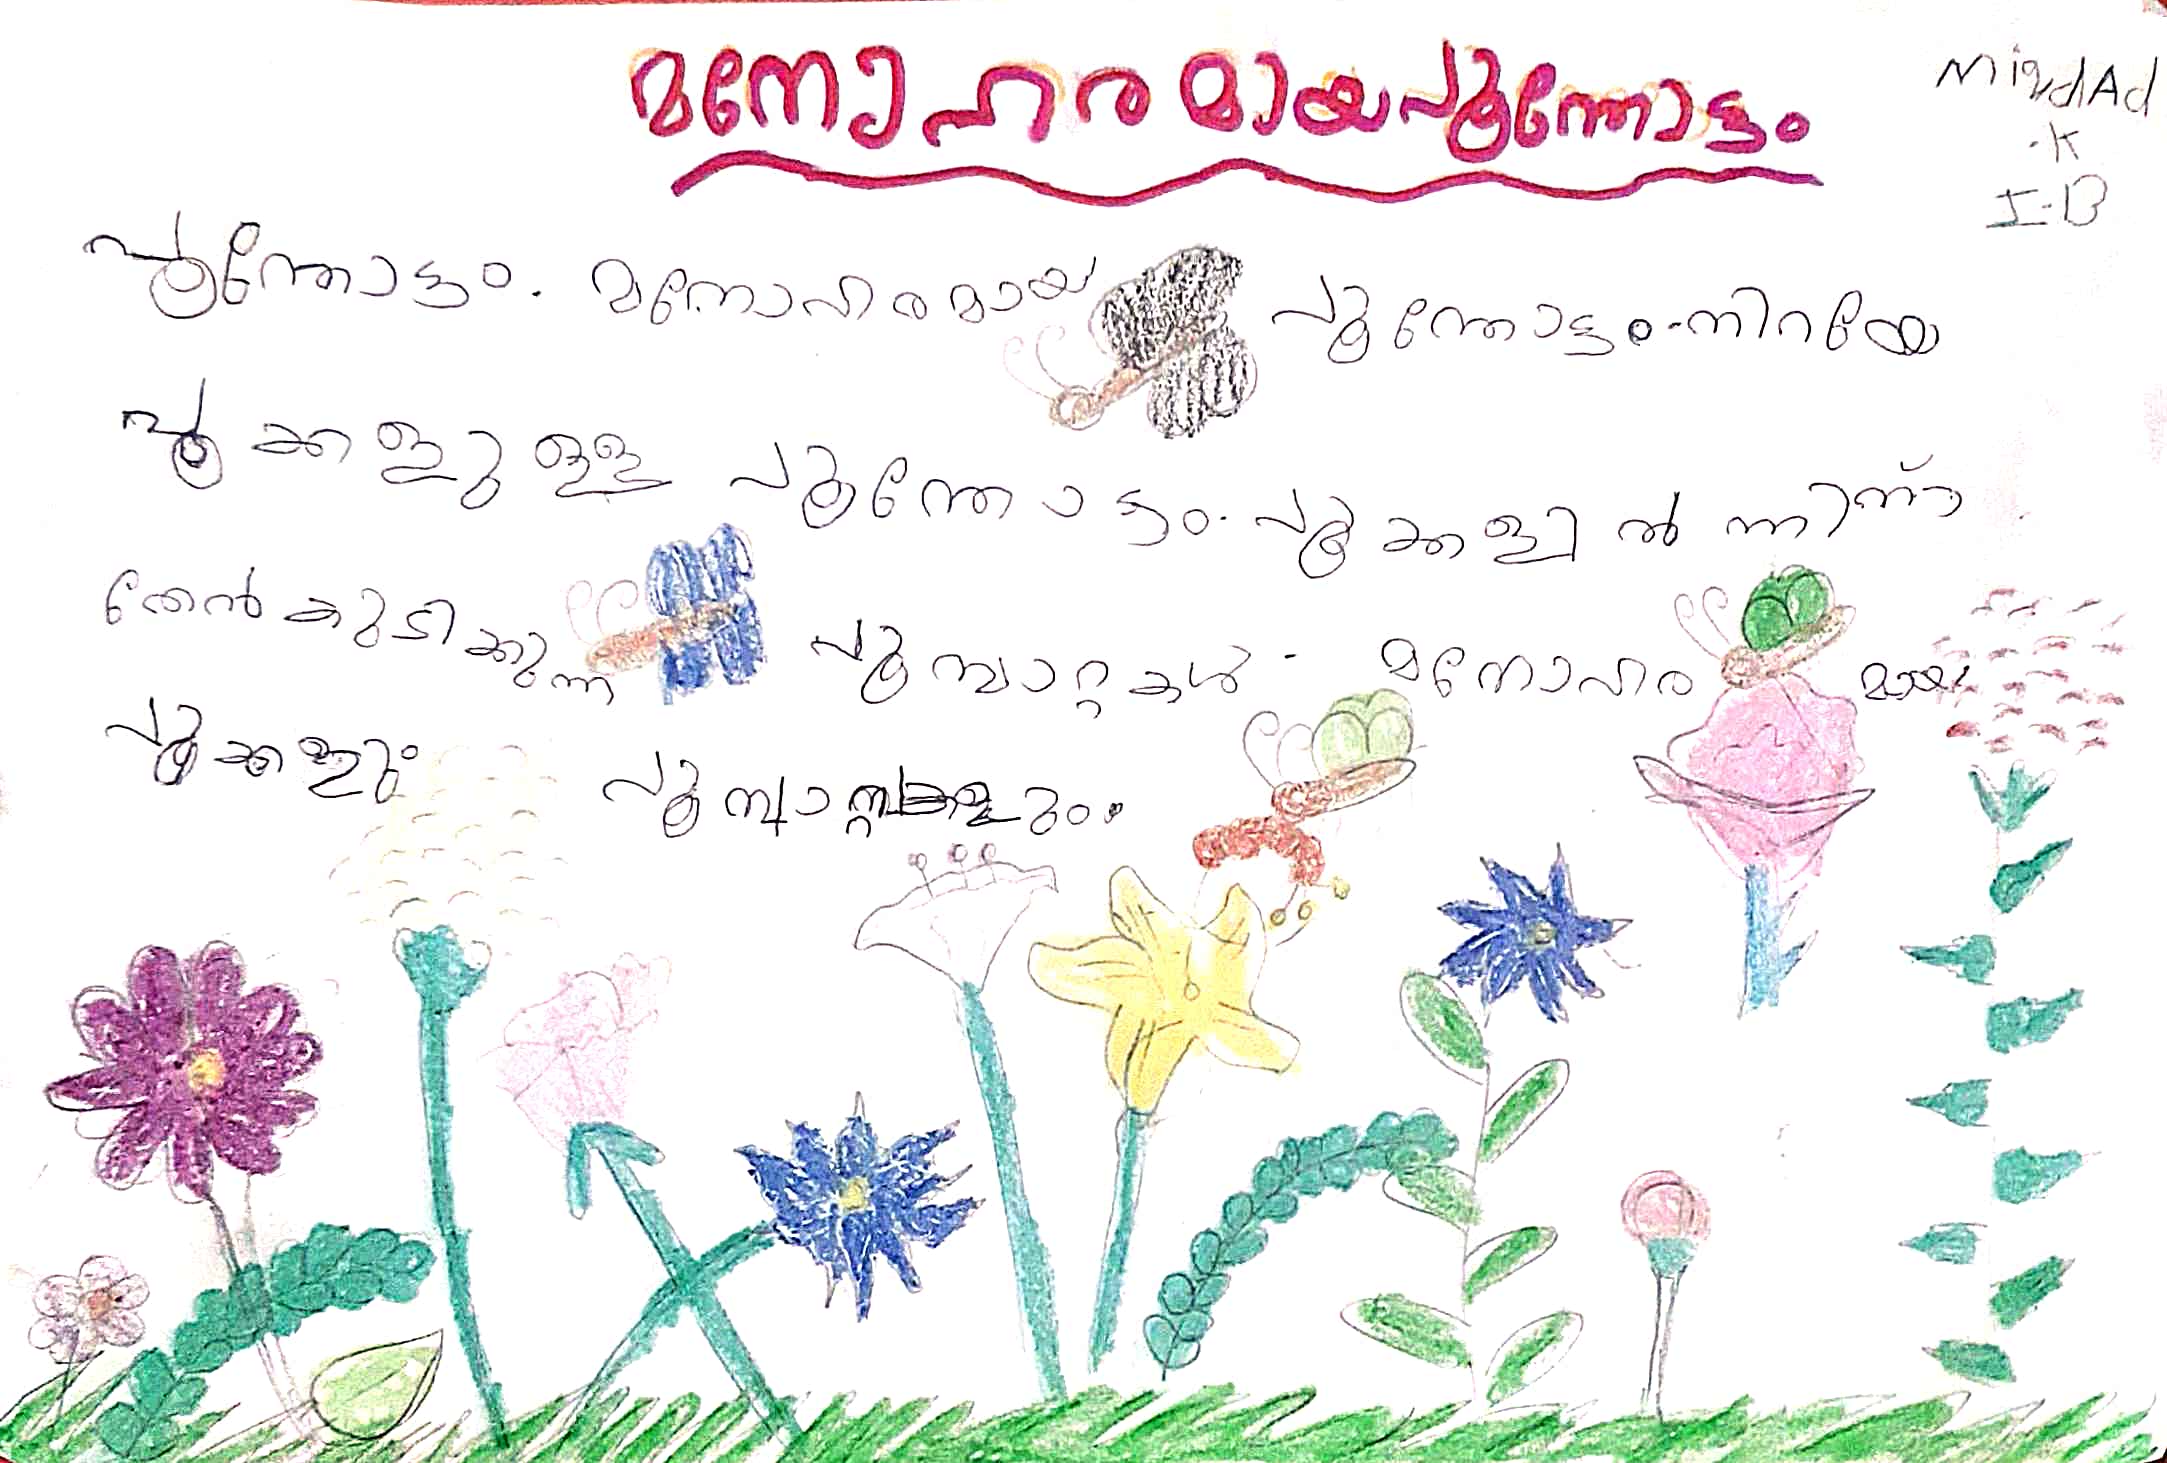 മനോഹരമായപൂന്തോട്ടം
MiqdAd
.K
I-B
പൂന്തോട്ടം. മനോഹരമായ പൂന്തോട്ടം.നിറയേ
പൂക്കളുള്ള പൂന്തോട്ടം. പൂക്കളിൽ ന്നിന്ന്
തേൻ കുടിക്കുന്ന പൂമ്പാറ്റകൾ. മനോഹരമായ
പൂക്കളും പൂമ്പാറ്റകളും.